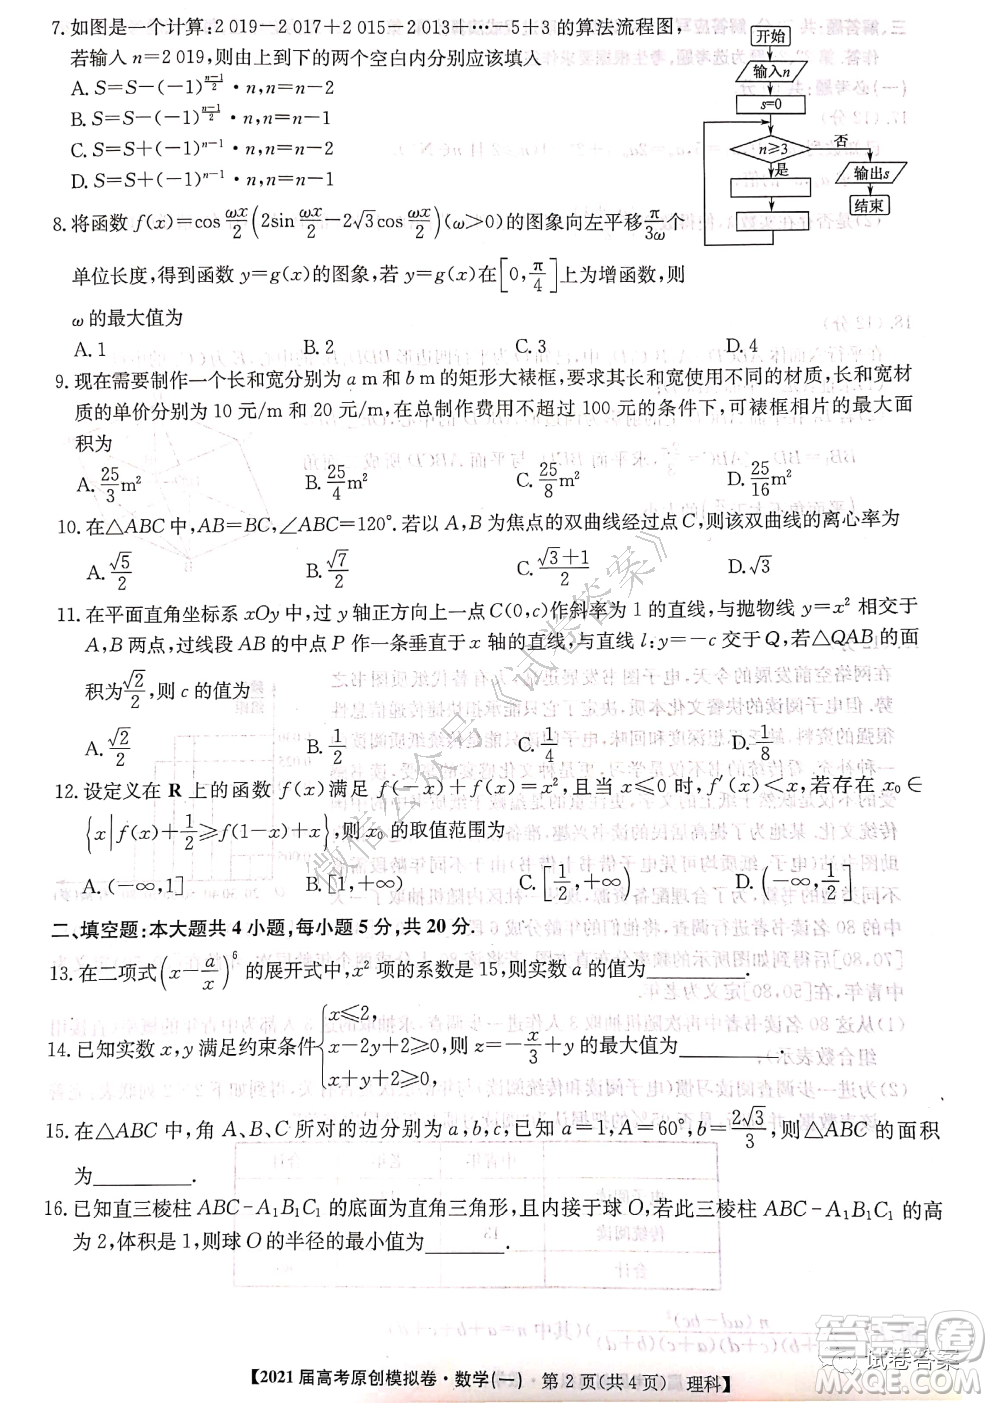 7. 如图是一个计算:2 019－2 017＋2 015－2 013＋…－5＋3 的算法流程图,
若输入 n＝2 019,则由上到下的两个空白内分别应该填入
A. S＝S－(－1)^{\frac{n-1}{2}}·n,n＝n－2
B. S＝S－(－1)^{\frac{n-1}{2}}·n,n＝n－1
C. S＝S＋(－1)^{n-1}·n,n＝n－2
D. S＝S＋(－1)^{n-1}·n,n＝n－1
开始
输入n
s=0
n≥3
否
是
输出s
结束
8. 将函数 f(x)＝cos\frac{ωx}{2}(2sin\frac{ωx}{2}－2√3cos\frac{ωx}{2})(ω＞0)的图象向左平移\frac{π}{3ω}个
单位长度,得到函数 y＝g(x)的图象,若 y＝g(x)在[0,\frac{π}{4}]上为增函数,则
ω 的最大值为
A. 1 B. 2 C. 3 D. 4
9. 现在需要制作一个长和宽分别为 a m 和 b m 的矩形大裱框,要求其长和宽使用不同的材质,长和宽材
质的单价分别为 10 元/m 和 20 元/m,在总制作费用不超过 100 元的条件下,可裱框相片的最大面
积为
A. \frac{25}{3}m² B. \frac{25}{4}m² C. \frac{25}{8}m² D. \frac{25}{16}m²
10. 在△ABC 中,AB＝BC,∠ABC＝120°. 若以 A,B 为焦点的双曲线经过点 C,则该双曲线的离心率为
A. \frac{√5}{2} B. \frac{√7}{2} C. \frac{√3+1}{2} D. √3
11. 在平面直角坐标系 xOy 中,过 y 轴正方向上一点 C(0,c)作斜率为 1 的直线,与抛物线 y＝x² 相交于
A,B 两点,过线段 AB 的中点 P 作一条垂直于 x 轴的直线,与直线 l:y＝－c 交于 Q,若△QAB 的面
积为\frac{√2}{2},则 c 的值为
A. \frac{√2}{2} B. \frac{1}{2} C. \frac{1}{4} D. \frac{1}{8}
12. 设定义在 R 上的函数 f(x)满足 f(－x)＋f(x)＝x²,且当 x≤0 时,f′(x)＜x,若存在 x₀∈
{x|f(x)＋\frac{1}{2}≥f(1－x)＋x},则 x₀ 的取值范围为
A. (－∞,1] B. [1,＋∞) C. [\frac{1}{2},＋∞) D. (－∞,\frac{1}{2}]
二、填空题:本大题共 4 小题,每小题 5 分,共 20 分.
13. 在二项式(x－\frac{a}{x})^6 的展开式中,x² 项的系数是 15,则实数 a 的值为________.
14. 已知实数 x,y 满足约束条件{x≤2, x－2y＋2≥0, x＋y＋2≥0, 则 z＝－\frac{x}{3}＋y 的最大值为________.
15. 在△ABC 中,角 A、B、C 所对的边分别为 a,b,c,已知 a＝1,A＝60°,b＝\frac{2√3}{3},则△ABC 的面积
为________.
16. 已知直三棱柱 ABC－A₁B₁C₁ 的底面为直角三角形,且内接于球 O,若此三棱柱 ABC－A₁B₁C₁ 的高
为 2,体积是 1,则球 O 的半径的最小值为________.
【2021 届高考原创模拟卷·数学(一) 第 2 页(共 4 页) 理科】
《试卷答案》
微信公众号
试卷答案
答案圈
MXQE.COM